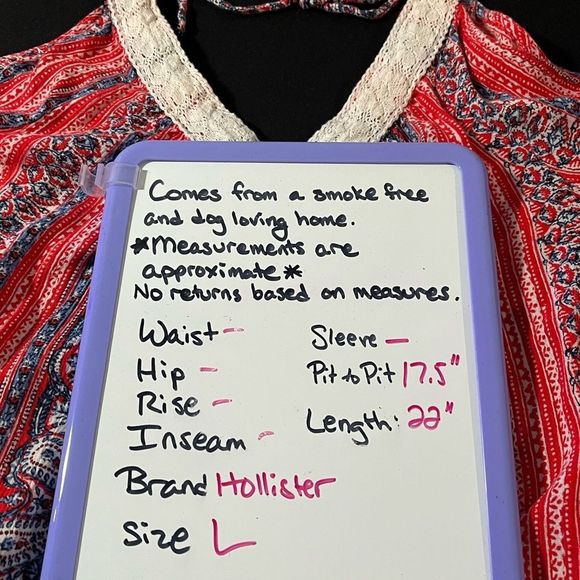 Comes from a smoke free
and dog loving home.
*Measurements are
approximate*
No returns based on measures.
Waist -
Hip -
Rise -
Inseam -
Sleeve -
Pit to Pit 17.5"
Length: 22"
Brand Hollister
Size L